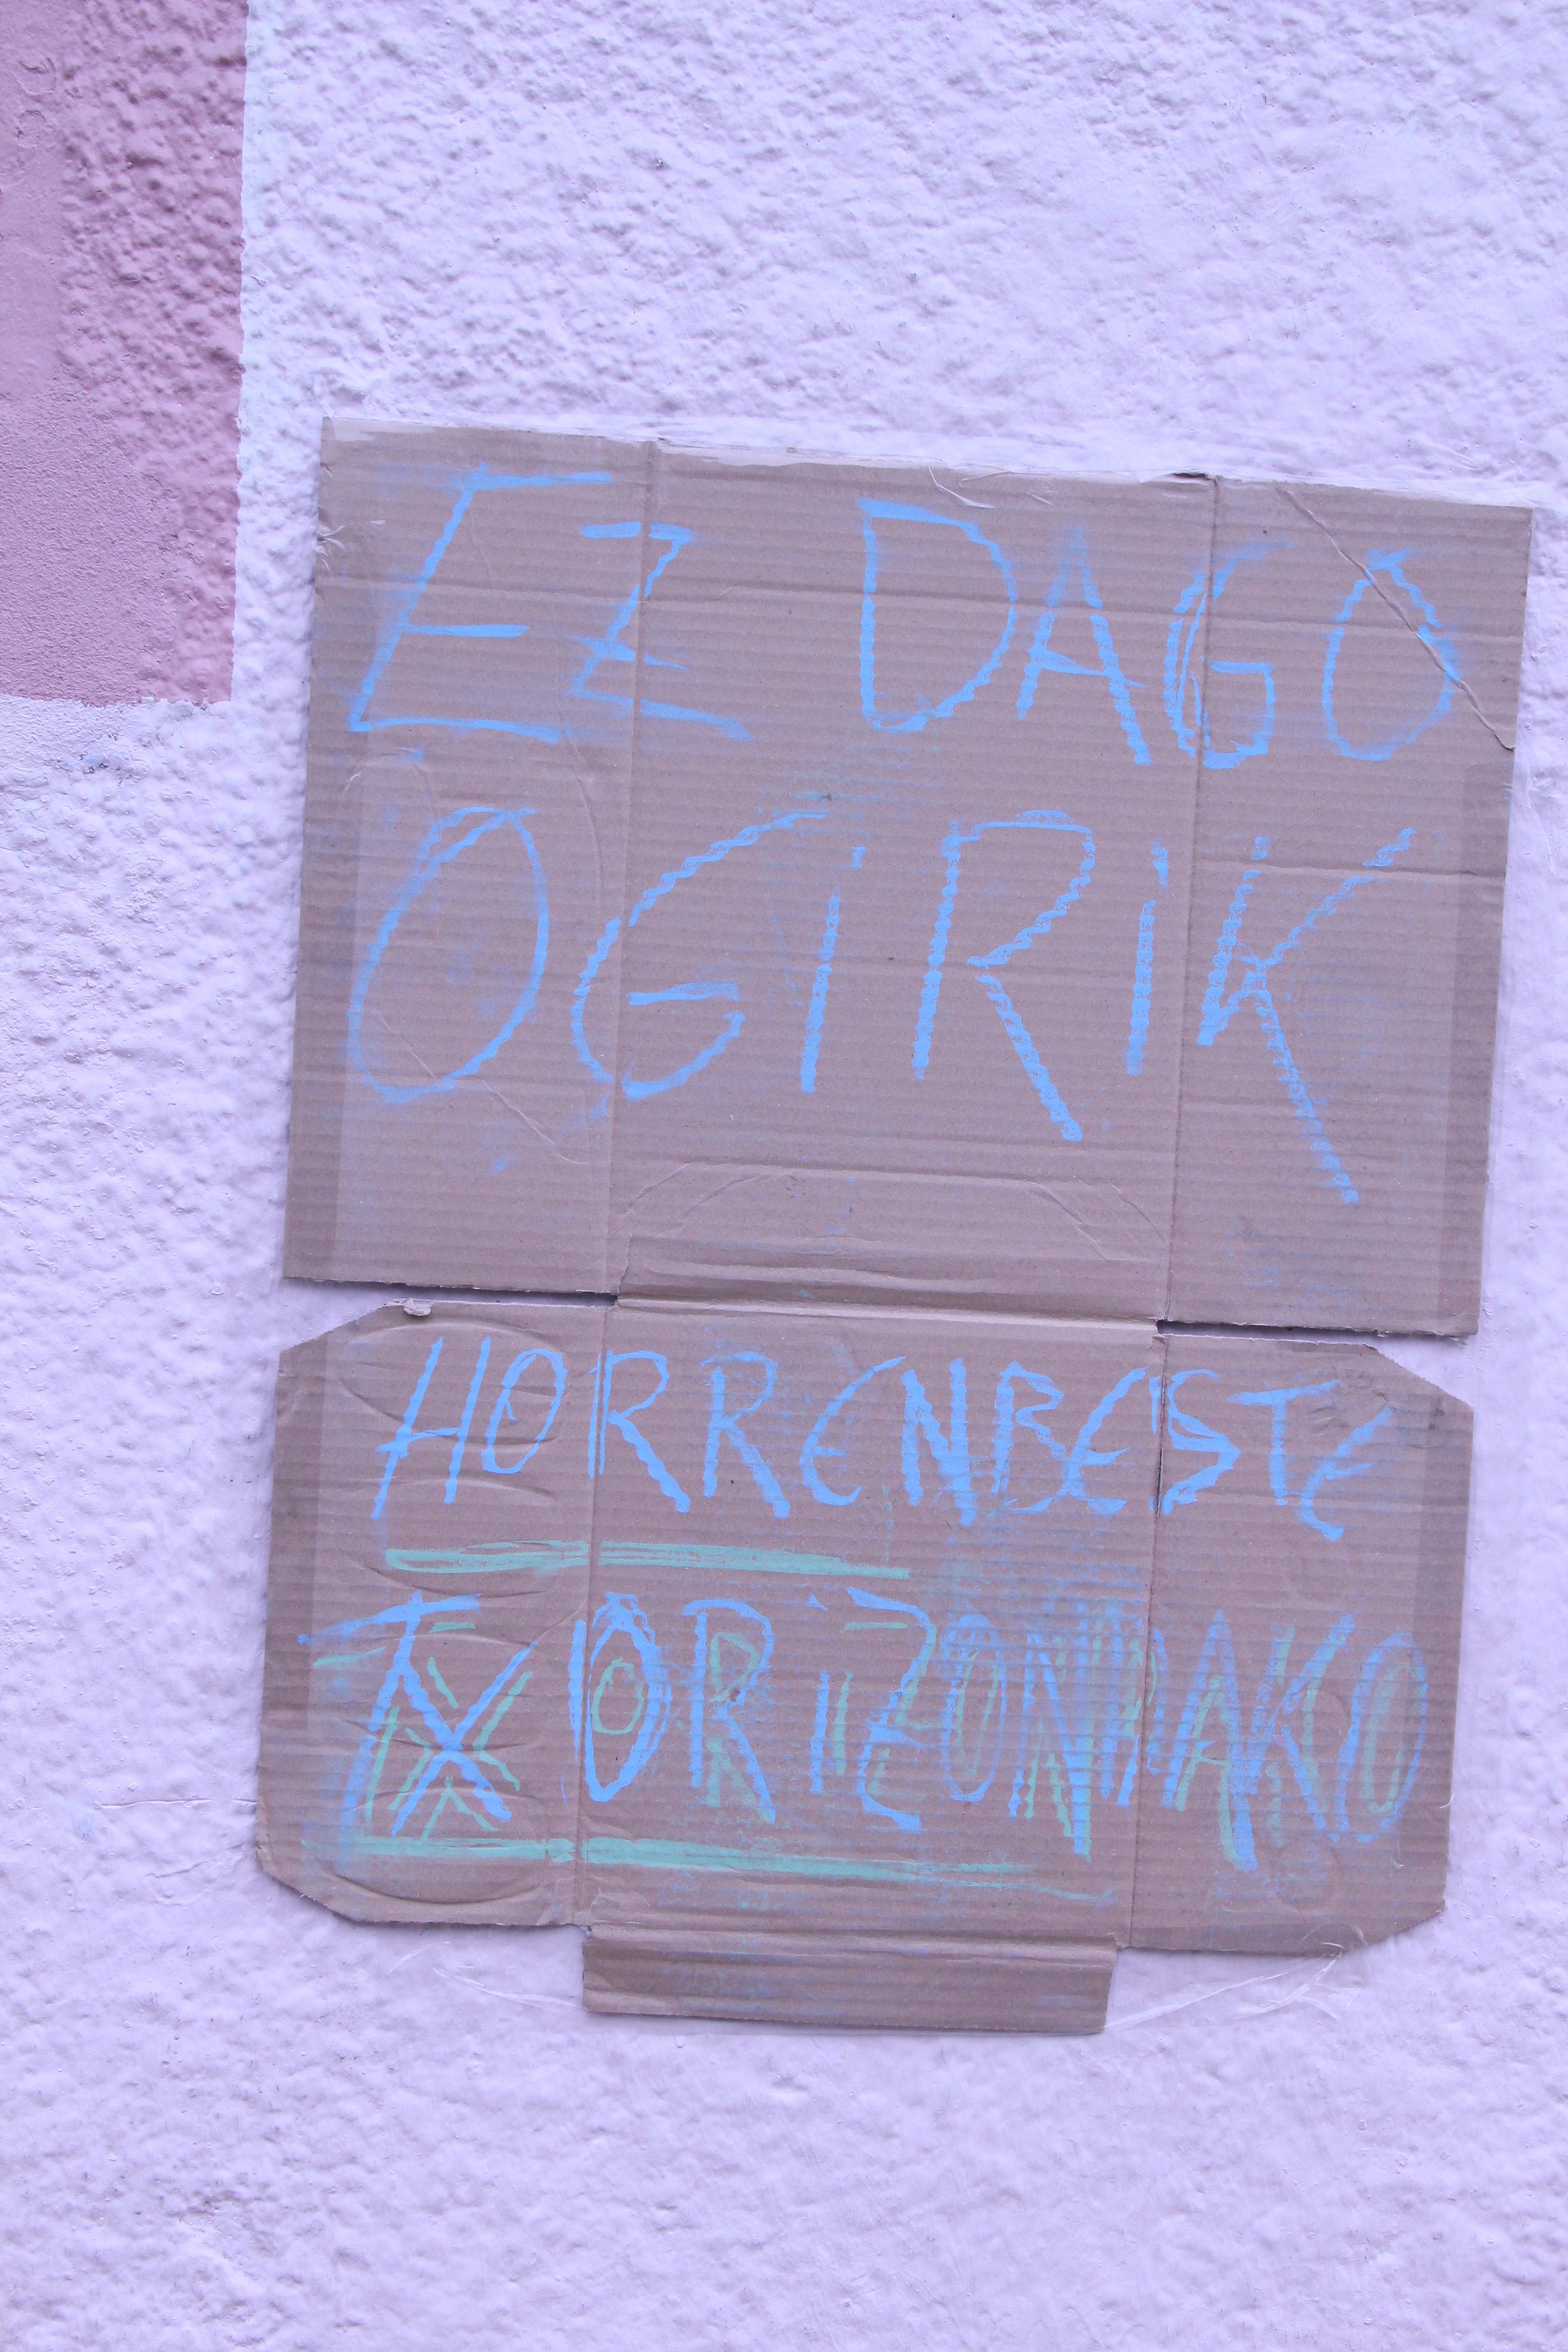 EZ DAGO
OGIRIK
HORRENBESTE
TXORIZONAKO